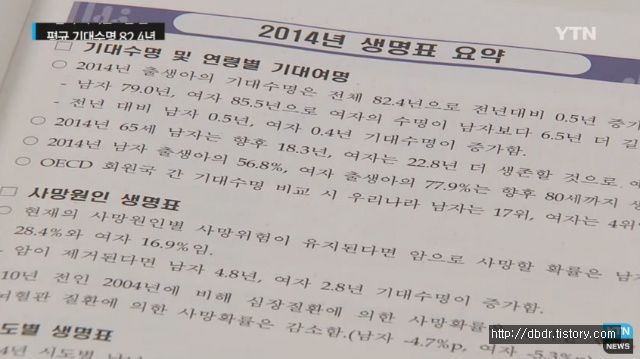 평균 기대수명 82.4년
YTN
2014년 생명표 요약
□ 기대수명 및 연령별 기대여명
○ 2014년 출생아의 기대수명은 전체 82.4년으로 전년대비 0.5년 증가
- 남자 79.0년, 여자 85.5년으로 여자의 수명이 남자보다 6.5년 더 길
- 전년 대비 남자 0.5년, 여자 0.4년 기대수명이 증가함.
○ 2014년 65세 남자는 향후 18.3년, 여자는 22.8년 더 생존할 것으로 예
○ 2014년 남자 출생아의 56.8%, 여자 출생아의 77.9%는 향후 80세까지 생
○ OECD 회원국 간 기대수명 비교 시 우리나라 남자는 17위, 여자는 4위
□ 사망원인 생명표
○ 현재의 사망원인별 사망위험이 유지된다면 암으로 사망할 확률은 남자
28.4%와 여자 16.9%임.
- 암이 제거된다면 남자 4.8년, 여자 2.8년 기대수명이 증가함.
10년 전인 2004년에 비해 심장질환에 의한 사망확률은
뇌혈관 질환에 의한 사망확률은 감소함.(남자 -4.7%p, 여자 -5.3%p
도별 생명표
4년 시도별
YTN
NEWS
http://dbdr.tistory.com